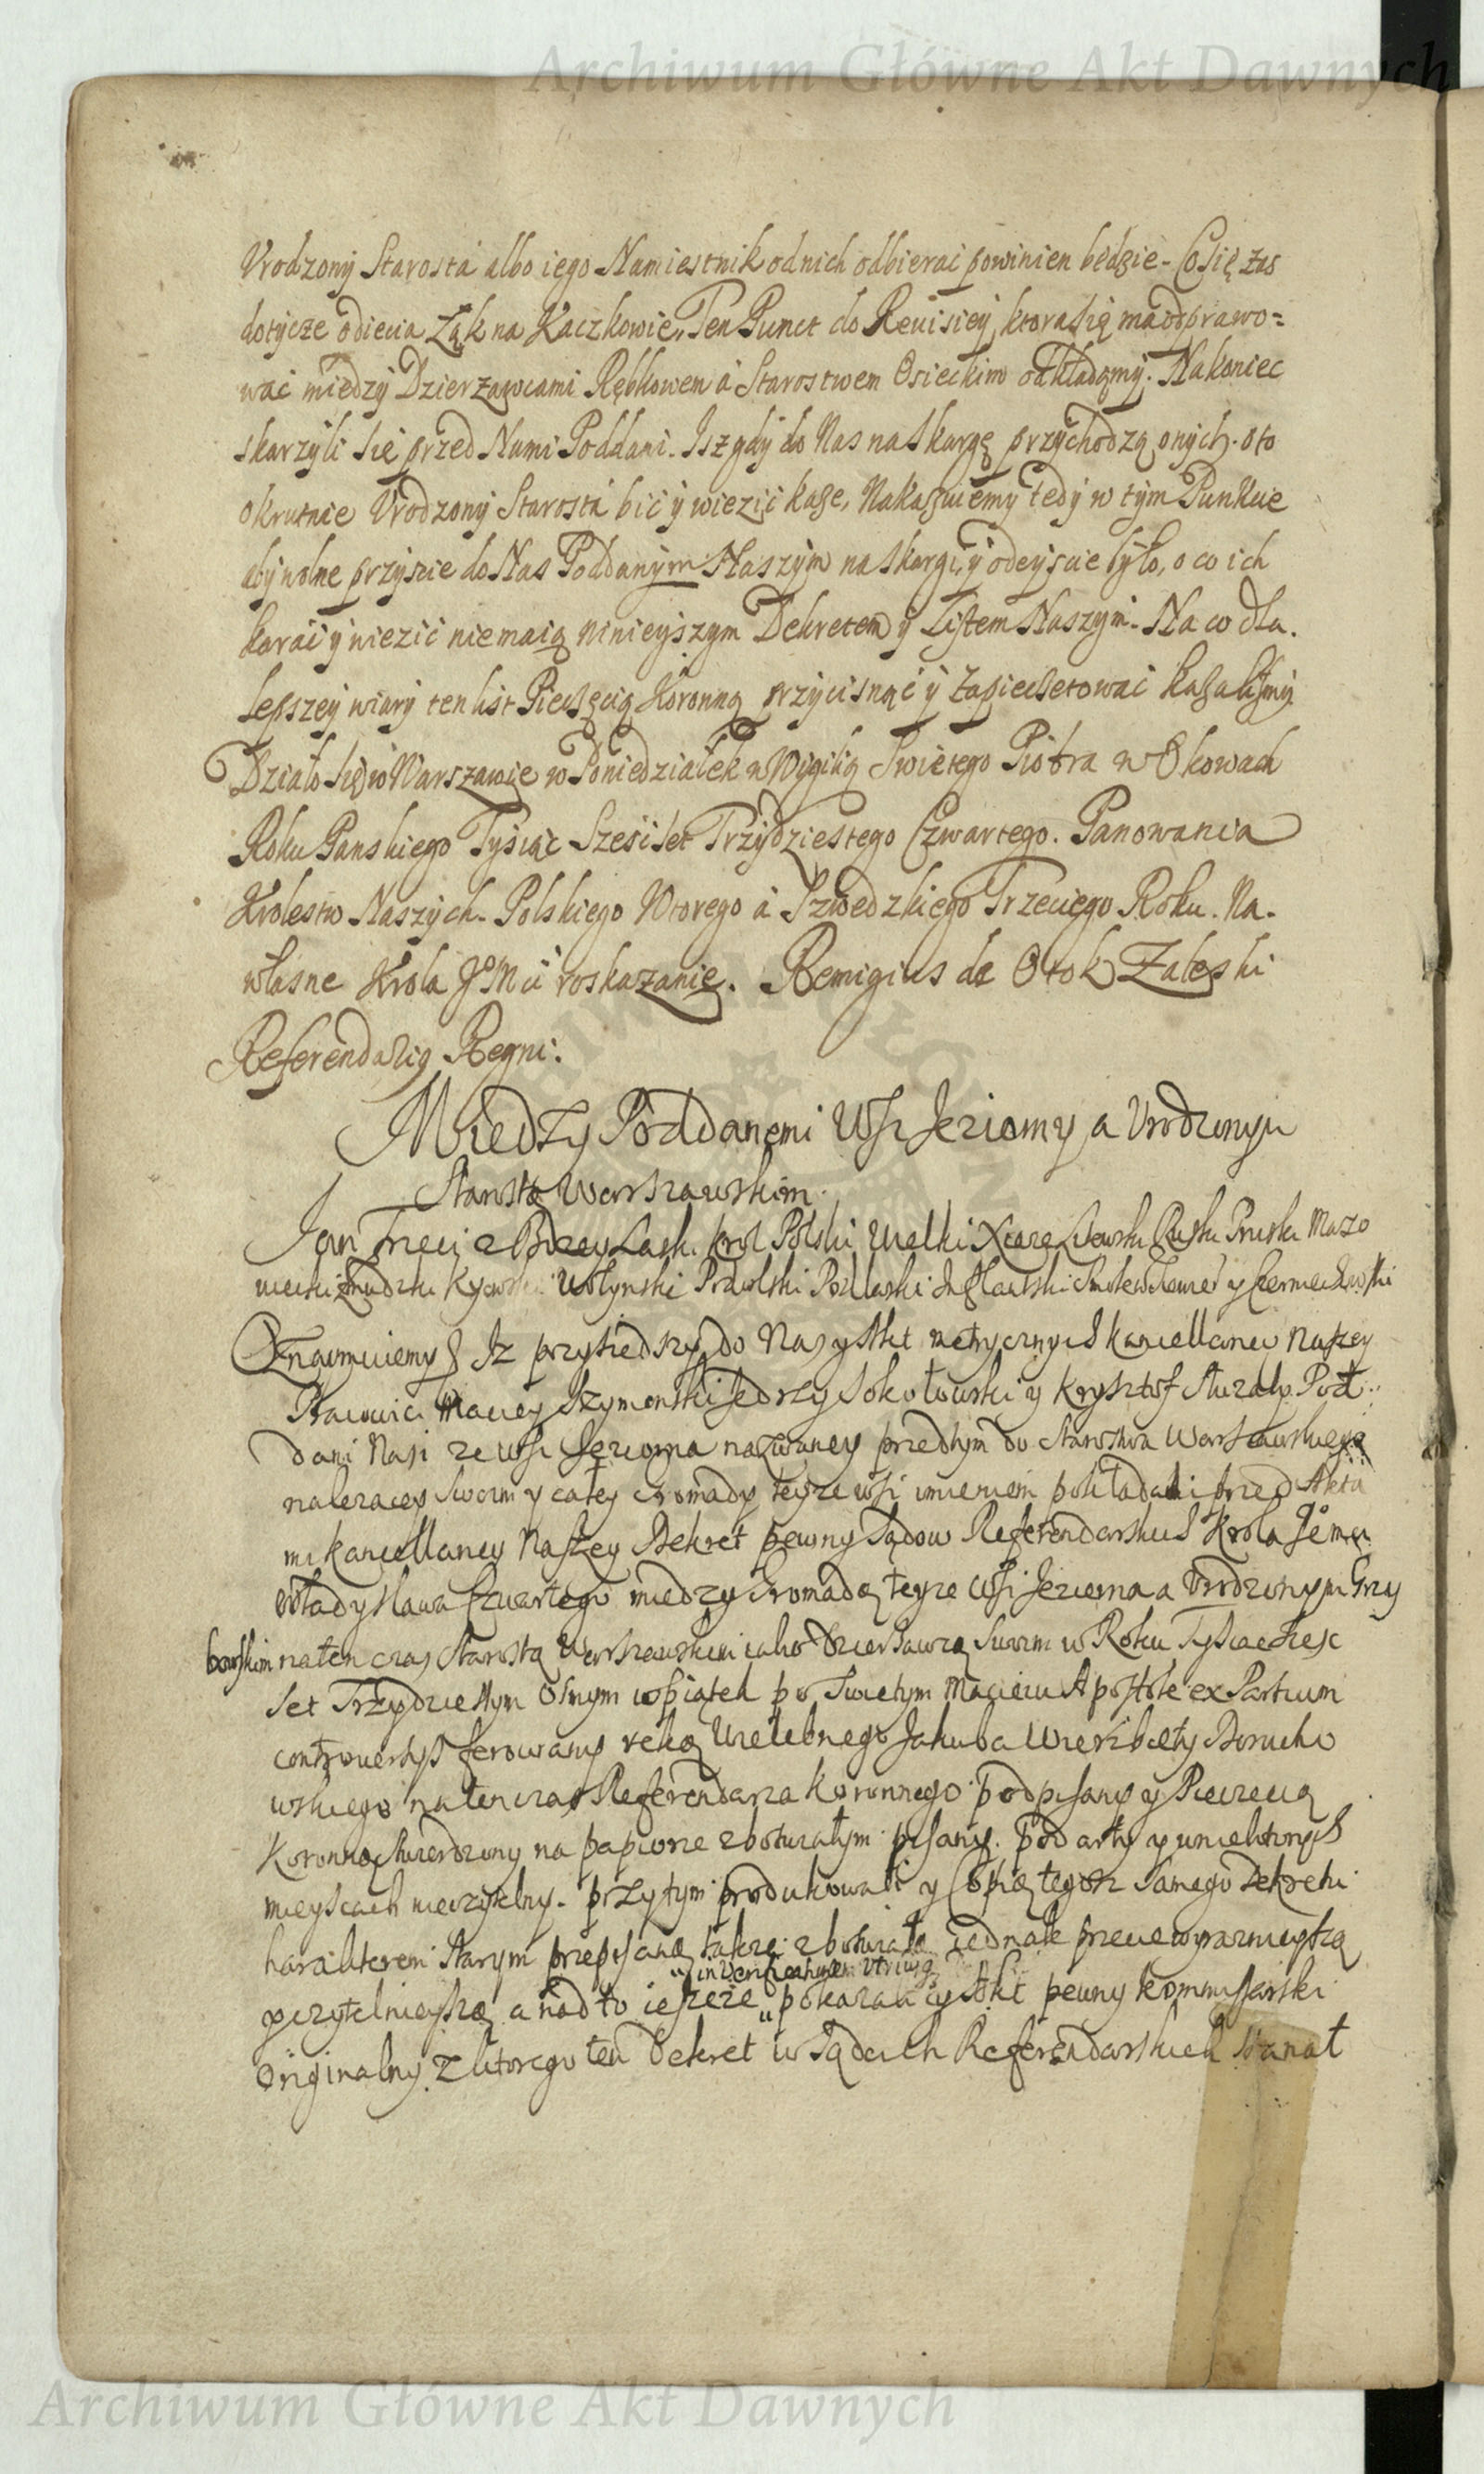 Archiwum Główne Akt Dawnych
Vrodzony Starosta albo iego Namiestnik od nich odbierać powinien będzie. Co się zas
dotycze odięcia Łąk na Kaczkowie, Ten Punct do Reuisiey, ktora się ma odprawo=
wać między Dzierzawcami Rębkowem á Starostwem Osieckim odkładamy. Nakoniec
skarzyli się przed Nami Poddani. Isz gdy do Nas na skargę przychodzą onych. oto
okrutnie Vrodzony Starosta bić ÿ więzić kaze, Nakazuiemy tedy w tym Punkcie
aby wolne przyscie do Nas Poddanym Naszym na skargi, ÿ odeyscie było, o co ich
karać ÿ więzić nie maią ninieyszym Dekretem ÿ Listem Naszym. Na co dla
lepszey wiary ten list Pieczęcią Koronną przycisnąć ÿ zapieczetować kazalismy.
Działo się w Warszawie w Poniedziałek w Wigilią Swietego Piotra w Okowach
Roku Panskiego Tysiąc Szescset Trzydziestego Czwartego. Panowania
Krolestw Naszych. Polskiego Wtorego á Szwedzkiego Trzeciego Roku. Na
własne Krola JoMci roskazanie. Remigius de Otok Zaleski
Referendariq Regni.
Miedzy Poddanemi Wsi Jeziorny a Vrodzonym
Starostą Warszawskim.
Jan Trzeci z Bozey Łaski Krol Polski Wielki Xiąze Litewski Ruski Pruski Mazo
wiecki Zmudzki Kyowski Wołynski Podolski Podlaski Inflantski Smolenski y Czerniechowski
Oznaymuiemy Iz przyszedszy do Nas y Akt metrycznych kancellariey Naszey
Pracowici Maciey Szymonski Jedrzey Sokołowski y Krysztof Pod
dani Nasi ze wsi Jeziorna nazwaney przedtym do Starostwa Warszawskiego
nalezacey swoim y całey Gromady teyze wsi imieniem pokładali przed Akta
mi kancellariey Naszey Dekret pewny Sądow Referendarskich Krola Jo Mci
Władysława Czwartego miedzy Gromadą teyze wsi Jeziorna a Vrodzonym Grzy
bowskim na ten czas Starostą Warszawskim iako Dzierzawcą swoim w Roku Tysiąc Szesc
set Trzydziestym Osmym w piątek po Swietym Macieiu Apostole ex Partium
controuersys ferowany ręką Wielebnego Jakuba Wierzbiety Doruchow
wskiego na ten czas Referendarza Koronnego podpisany y Pieczecią
Koronną stwierdzony na papierze zbotwiałym pisany. podarty y w niektorych
mieyscach nieczytelny. przytym produkowali y Copią tegoz samego Dekretu
harakterem starym przepisaną takze zbotwiałą iednak przecie wyraznieyszą
„in Verificationem utriusq
y czytelnieyszą a nad to ieszcze „ pokazali y Akt pewny kommissarski
originalny z ktorego ten Dekret w Sądach Referendarskich stanał
Archiwum Główne Akt Dawnych